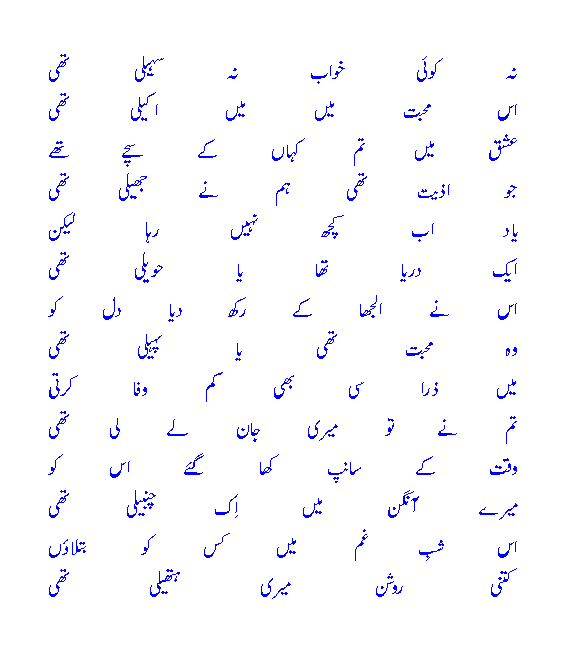 نہ کوئی خواب نہ سہیلی تھی
اس محبت میں میں اکیلی تھی
عشق میں تم کہاں کے سچے تھے
جو اذیت تھی ہم نے جھیلی تھی
یاد اب کچھ نہیں رہا لیکن
ایک دریا تھا یا حویلی تھی
اس نے الجھا کے رکھ دیا دل کو
وہ محبت تھی یا پہیلی تھی
میں ذرا سی بھی کم وفا کرتی
تم نے تو میری جان لے لی تھی
وقت کے سانپ کھا گئے اس کو
میرے آنگن میں اِک چنبیلی تھی
اس شبِ غم میں کس کو بتلاؤں
کتنی روشن میری ہتھیلی تھی